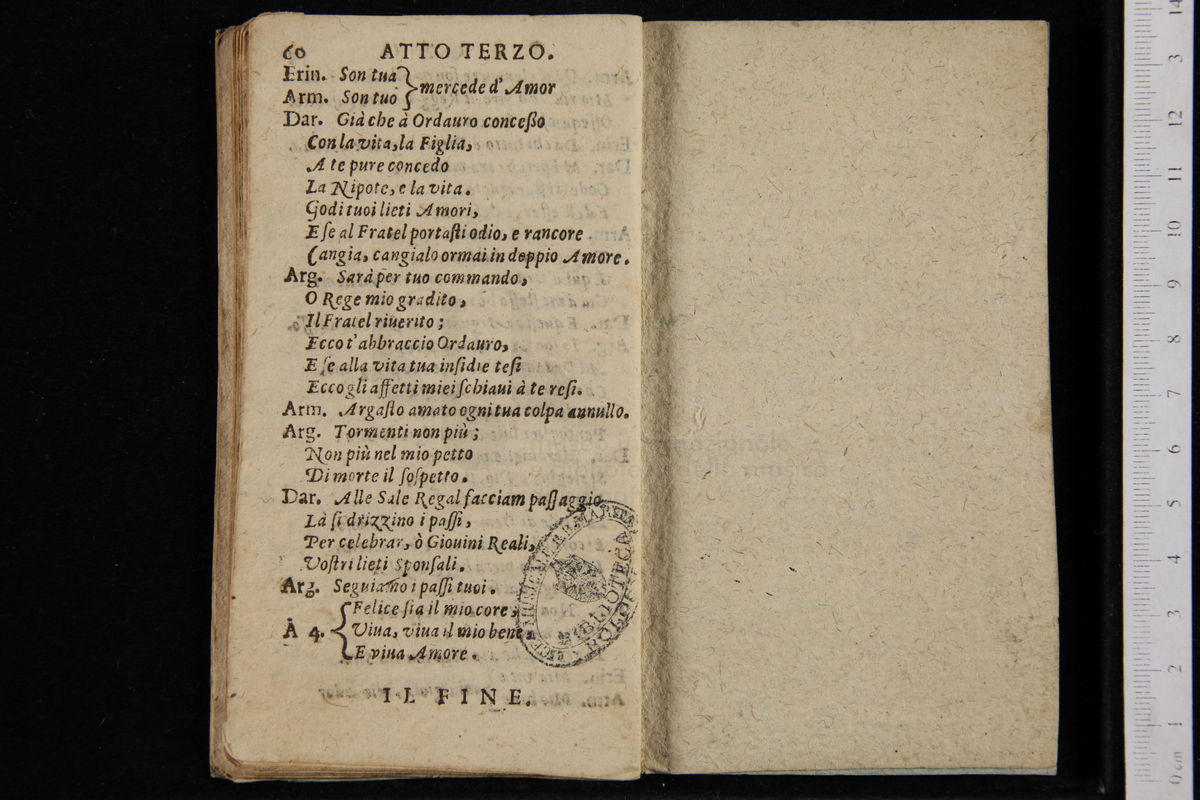 60 ATTO TERZO.
Erin. Son tua
mercede d'Amor
Arm. Son tuo
Dar. Già che à Ordauro conceßo
Con la vita, la Figlia,
A te pure concedo
La Nipote, e la vita.
Godi tuoi lieti Amori,
E ſe al Fratel portaſti odio, e rancore
Cangia, cangialo ormai in doppio Amore.
Arg. Sarà per tuo commando,
O Rege mio gradito,
Il Fratel riuerito;
Ecco t'abbraccio Ordauro,
E ſe alla vita tua inſidie teſi
Ecco gli affetti miei ſchiaui à te reſi.
Arm. Argaſto amato ogni tua colpa annullo.
Arg. Tormenti non più;
Non più nel mio petto
Di morte il ſoſpetto.
Dar. Alle Sale Regal facciam paſſaggio
Là ſi drizzino i paſſi,
Per celebrar, ò Giouini Reali,
Voſtri lieti Sponſali.
Arg. Seguiamo i paſſi tuoi.
Felice ſia il mio core,
À 4. Viua, viua il mio bene,
E viua Amore.
IL FINE.
BIBLIOTECA